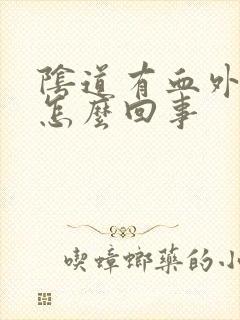 陰道有血外
怎麼回事
喫蟑螂藥的小